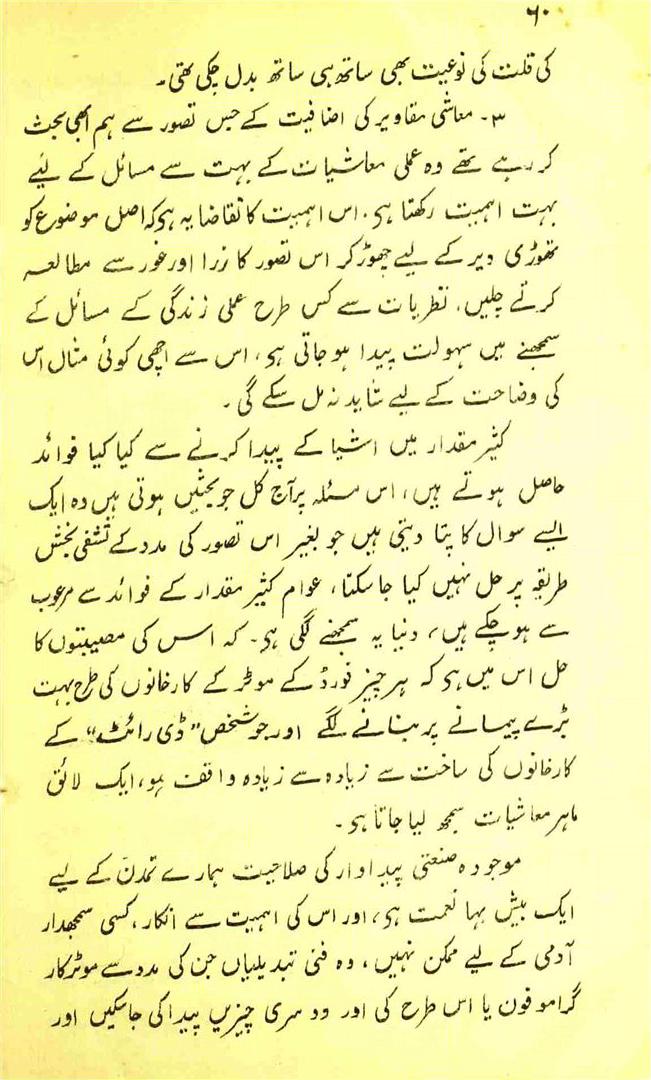 ۶۰
کی قلت کی نوعیت بھی ساتھ ہی ساتھ بدل چکی تھی۔
۳۔ معاشی مقادیر کی اضافیت کے جس تصور سے ہم ابھی بحث
کر رہے تھے وہ عملی معاشیات کے بہت سے مسائل کے لیے
بہت اہمیت رکھتا ہی۔ اس اہمیت کا تقاضا یہ ہی کہ اصل موضوع کو
تھوڑی دیر کے لیے چھوڑ کر اس تصور کا زرا اور غور سے مطالعہ
کرتے چلیں۔ نظریات سے کس طرح عملی زندگی کے مسائل کے
سمجھنے میں سہولت پیدا ہو جاتی ہی، اس سے اچھی کوئی مثال اس
کی وضاحت کے لیے شاید نہ مل سکے گی۔
کثیر مقدار میں اشیا کے پیدا کرنے سے کیا کیا فوائد
حاصل ہوتے ہیں، اس مسئلہ پر آج کل جو بحثیں ہوتی ہیں وہ ایک
ایسے سوال کا پتا دیتی ہیں جو بغیر اس تصور کی مدد کے تشفی بخش
طریقہ پر حل نہیں کیا جا سکتا، عوام کثیر مقدار کے فوائد سے مرعوب
سے ہو چکے ہیں، دنیا یہ سمجھنے لگی ہی۔ کہ اس کی مصیبتوں کا
حل اس میں ہی کہ ہر چیز فورڈ کے موٹر کے کارخانوں کی طرح بہت
بڑے پیمانے پر بنانے لگے اور جو شخص "ڈی رائٹ" کے
کارخانوں کی ساخت سے زیادہ سے زیادہ واقف ہو، ایک لائق
ماہر معاشیات سمجھ لیا جاتا ہی۔
موجودہ صنعتی پیداوار کی صلاحیت ہمارے تمدن کے لیے
ایک بیش بہا نعمت ہی، اور اس کی اہمیت سے انکار، کسی سمجھدار
آدمی کے لیے ممکن نہیں، وہ فنی تبدیلیاں جن کی مدد سے موٹر کار
گراموفون یا اس طرح کی اور دوسری چیزیں پیدا کی جا سکیں اور